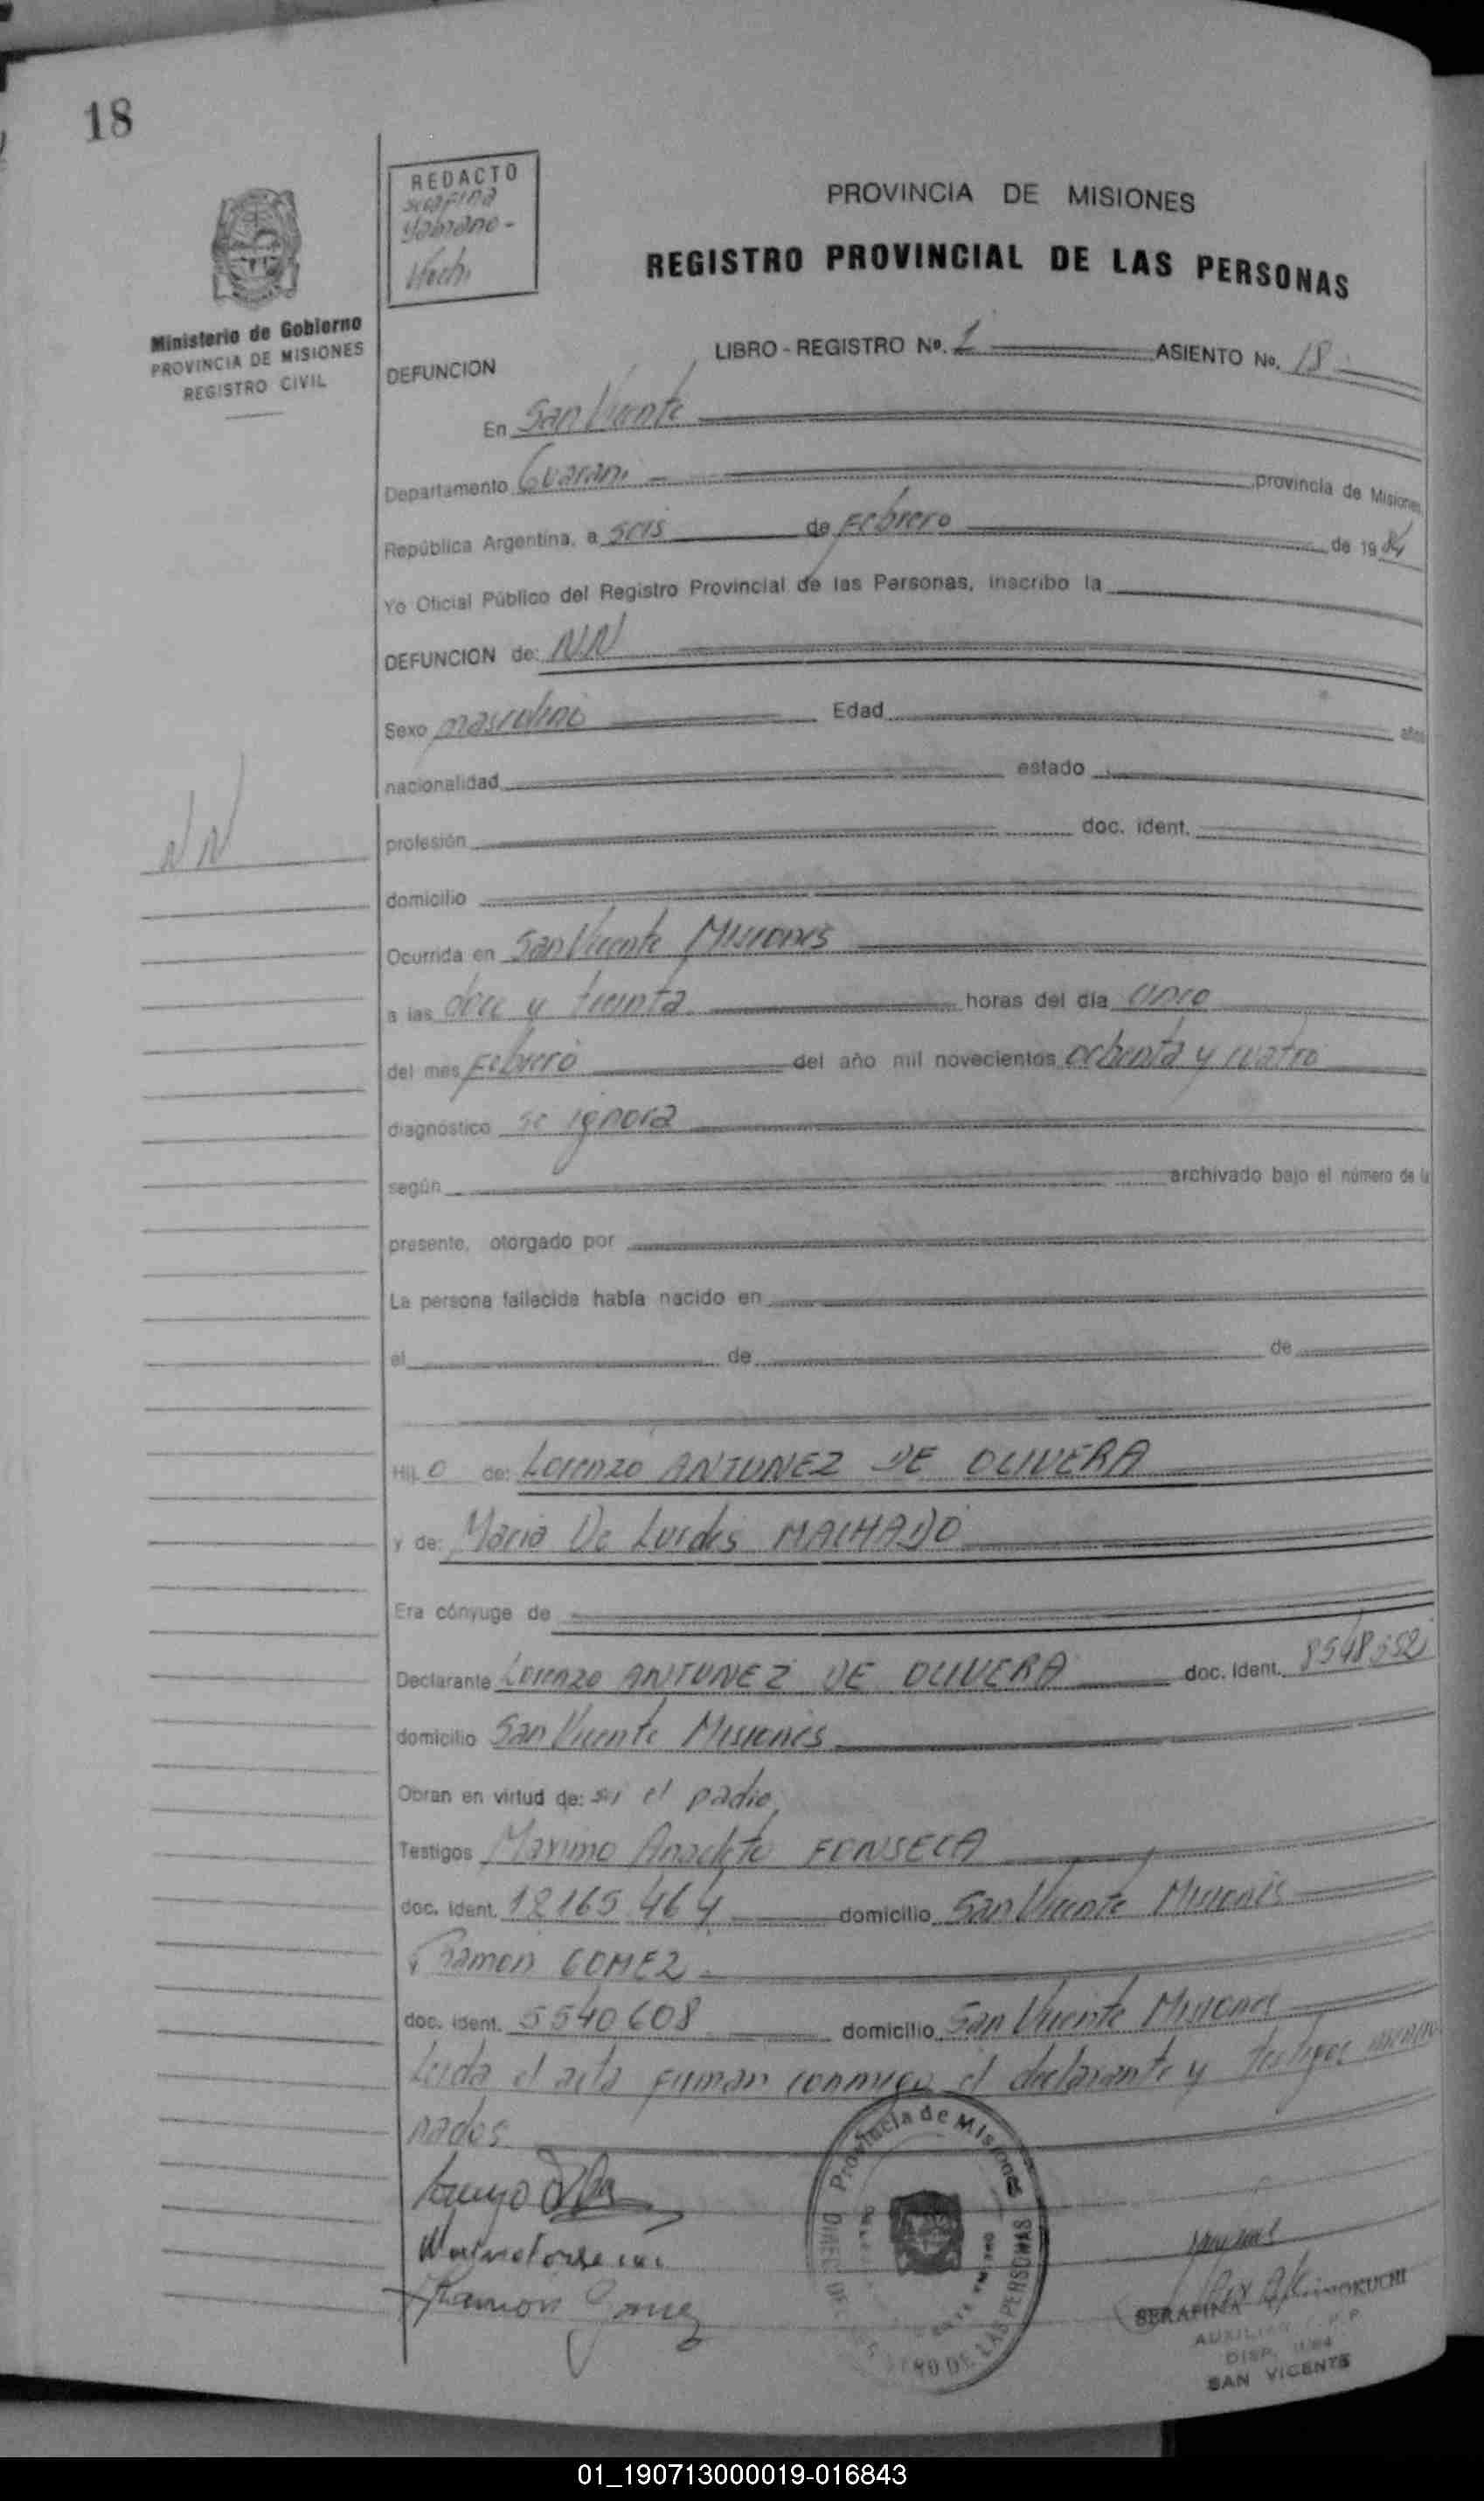 18
REDACTO
Serafina
Ministerio de Gobierno
PROVINCIA DE MISIONES
REGISTRO CIVIL
PROVINCIA DE MISIONES
REGISTRO PROVINCIAL DE LAS PERSONAS
LIBRO - REGISTRO Nº. 1 ASIENTO No. 18
DEFUNCION
En San Vicente
Departamento Guarani provincia de Misiones,
República Argentina, a seis de Febrero de 1984
Yo Oficial Público del Registro Provincial de las Personas, inscribo la
DEFUNCION de: NN
Sexo masculino Edad años
nacionalidad estado
NN
profesión doc. ident.
domicilio
Ocurrida en San Vicente Misiones
a las doce y treinta horas del día cinco
del mes Febrero del año mil novecientos ochenta y cuatro
diagnóstico se ignora
según archivado bajo el número de la
presente, otorgado por
La persona fallecida había nacido en
el de de
Hij o de: Lorenzo ANTUNEZ DE OLIVERA
y de: Maria De Lurdes MACHADO
Era cónyuge de
Declarante Lorenzo ANTUNEZ DE OLIVERA doc. ident. 8548552
domicilio San Vicente Misiones
Obran en virtud de: ser el padre
Testigos Maximo Anacleto FONSECA
doc. ident. 12165464 domicilio San Vicente Misiones
Ramon GOMEZ
doc. ident. 5540608 domicilio San Vicente Misiones
Leida el acta firman conmigo el declarante y testigos mencio
nados
Provincia de Misiones
DE LAS PERSONAS
Ramon Gomez
SERAFINA
AUXILIAR
DISP.
SAN VICENTE
01_190713000019-016843